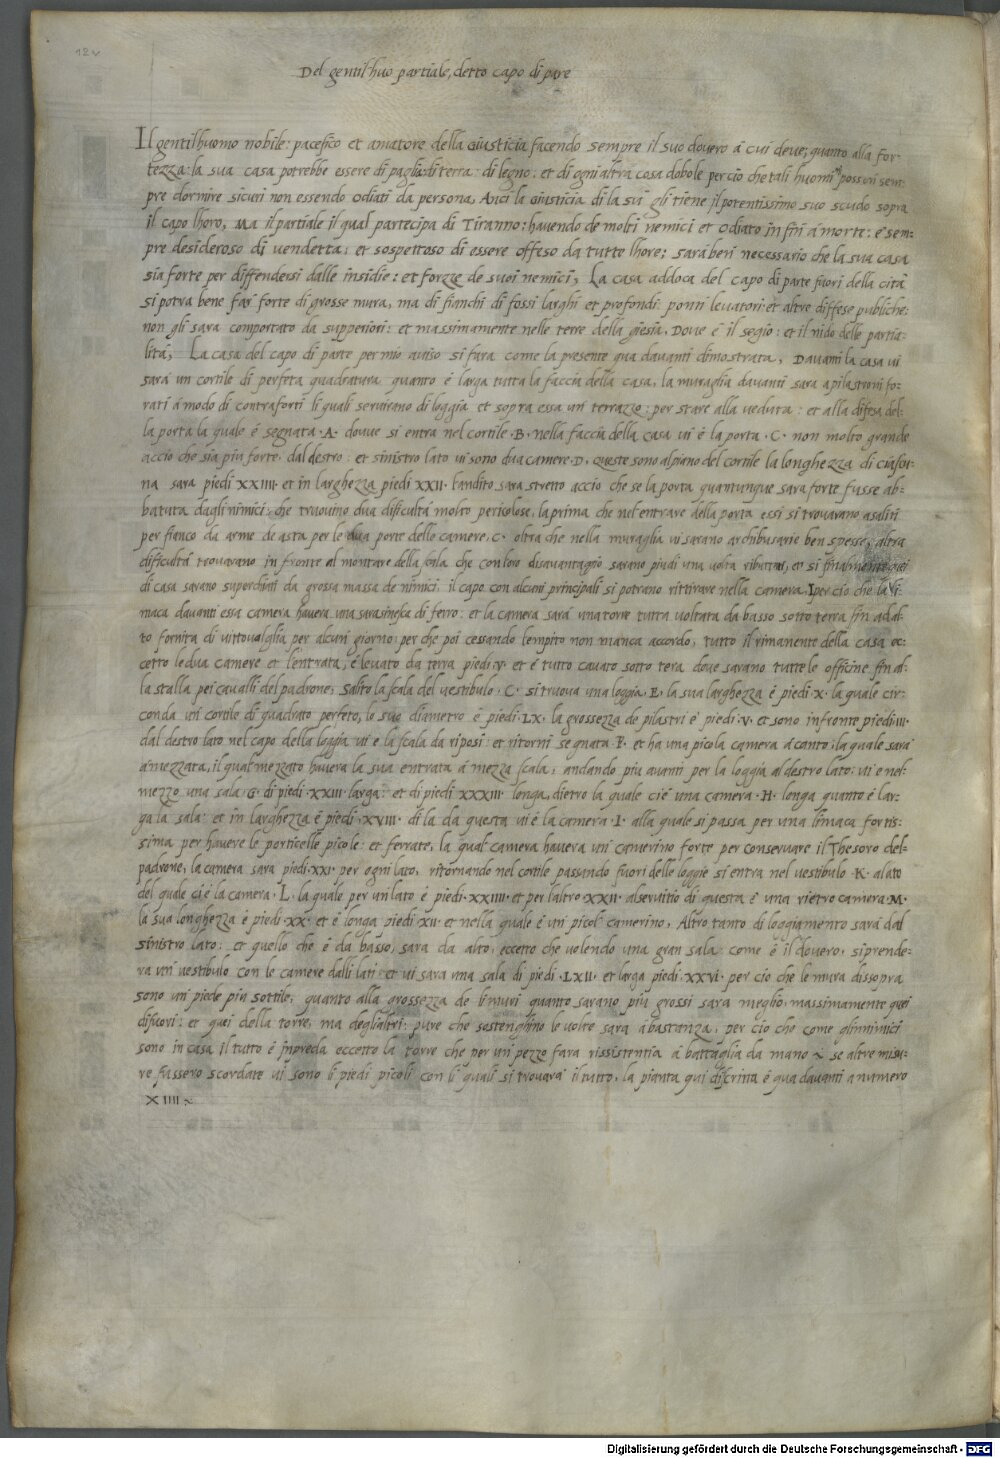 12v
Del gentil'huo partiale, detto capo di parte
Il gentilhuomo nobile: pacefico et amatore della Giusticia facendo sempre il suo dovero à cui deve; quanto alla for-
tezza: la sua casa potrebbe essere di paglia: di terra: di legno: et di ogni altra cosa debole per cio che tali huomini possuni sem-
pre dormire sicuri non essendo odiati da persona, Anci la Giusticia di la sù gli tiene il potentissimo suo scudo sopra
il capo lhoro, Ma il partiale il qual partecipa di Tiranno: havendo de molti nemici et odiato in fin à morte: é sem-
pre desideroso di vendetta: et sospettoso di essere offeso da tutte lhore: sarà ben necessario che la sua casa
sia forte per diffendersi dalle insidie: et forze de suoi nemici, La casa addoca del capo di parte fuori della cità
si potra bene far forte di grosse mura, ma di fianchi di fossi larghi et profondi: ponti levatori: et altre diffese publiche:
non gli sara comportato da supperiori: et massimamente nelle terre della giesia, Dove é il segio: et il nido delle partia-
lità, La casa del capo di parte per mio aviso si fara come la presente qua davanti dimostrata, Davanti la casa vi
sarà un cortile di perfeta quadratura quanto é larga tutta la faccia della casa, la muraglia davanti sara a pilastroni fo-
rati á modo di contraforti li quali servirano di loggia et sopra essa un terrazzo: per stare alla veduta: et alla difesa del-
la porta la quale é segnata ·A· dovve si entra nel cortile ·B· nella faccia della casa vi é la porta ·C· non molto grande
accio che sia piu forte, dal destro: et sinistro lato vi sono dua camere ·D· queste sono al piano del cortile la longhezza di ciascu-
na sara piedi XXIIII· et in larghezza piedi XXII· landito sara stretto accio che se la porta quantunque sara forte fusse ab-
batuta dagli nimici: che truovino dua difficultà molto pericolose, la prima che nel entrare della porta essi si trovarano asaliti
per fianco da arme de asta per le dua porte delle camere, C· oltra che nella muraglia vi sarano archibusarie ben spesse, altra
difficultà trovarano in fronte al montare della scala che con loro disavantagio sarano piu di una volta ributtati, et si finalmente quei
di casa sarano superchiati da grossa massa de nimici, il capo con alcuni principali si potrano rittirare nella camera, I per cio che la li-
maca davanti essa camera havera una sarasinesca di ferro: et la camera sarà una torre tutta voltata da basso sotto terra fin ad al-
to fornita di vittovalglia per alcun giorno: per che poi cessando lempito non manca accordo, tutto il rimanente della casa ec-
cetto le dua camere et lentrata, é levato da terra piedi ·V· et é tutto cavato sotto tera dove sarano tutte le officine fin al-
la stalla pei cavalli del padrone, Salito la scala del vestibulo ·C· si truova una loggia ·E· la sua larghezza é piedi ·X· la quale cir-
conda un cortile di quadrato perfeto, lo suo diametro é piedi ·LX· la grossezza de pilastri é piedi ·V· et sono in fronte piedi ·III·
dal destro lato nel capo della loggia vi é la scala da riposi: et ritorni segnata ·F· et ha una picola camera á canto, la quale sarà
ámezzata, il qual mezzato havera la sua entrata á mezza scala, andando piu avanti per la loggia al destro lato: vi é nel-
mezzo una sala ·G· di piedi ·XXIII· larga: et di piedi XXXIII· longa, dietro la quale ci é una camera ·H· longa quanto é lar-
ga la sala: et in larghezza é piedi ·XVIII· di la da questa vi é la camera ·I· alla quale si passa per una limaca fortis-
sima per havere le porticelle picole: et ferrate, la qual camera havera un camerino forte per conservare il Thesoro del-
padrone, la camera sara piedi ·XXI· per ogni lato, ritornando nel cortile passando fuori delle loggie si entra nel vestibulo ·K· alato
del quale ci é la camera ·L· la quale per un lato é piedi ·XXIIII· et per laltro XXII· al servitio di questa é una rietro camera ·M·
la sua longhezza é piedi ·XX· et é longa piedi ·XII· et nella quale é un picol camerino, Altro tanto di loggiamento sarà dal
sinistro lato: et quello che é da basso, sara da alto, eccetto che volendo una gran sala: come é il dovero, si prende-
ra un vestibulo con le camere dalli lati: et vi sara una sala di piedi ·LXII· et larga piedi ·XXVI· per cio che le mura dissopra
sono un piede piu sottile, quanto alla grossezza de li muri quanto sarano piu grossi sara meglio, massimamente quei
di fuori: et quei della torre, ma deglialtri: pure che sostenghino le volte sarà á bastanza, per cio che come gli nimici
sono in casa il tutto é in preda eccetto la torre che per un pezzo fara rissistentia á battaglia da mano ~ se altre misu-
re fussero scordate vi sono li piedi picoli con li quali si trovara il tutto, la pianta qui discritta é qua davanti a numero
XIIII ~
Digitalisierung gefördert durch die Deutsche Forschungsgemeinschaft - DFG